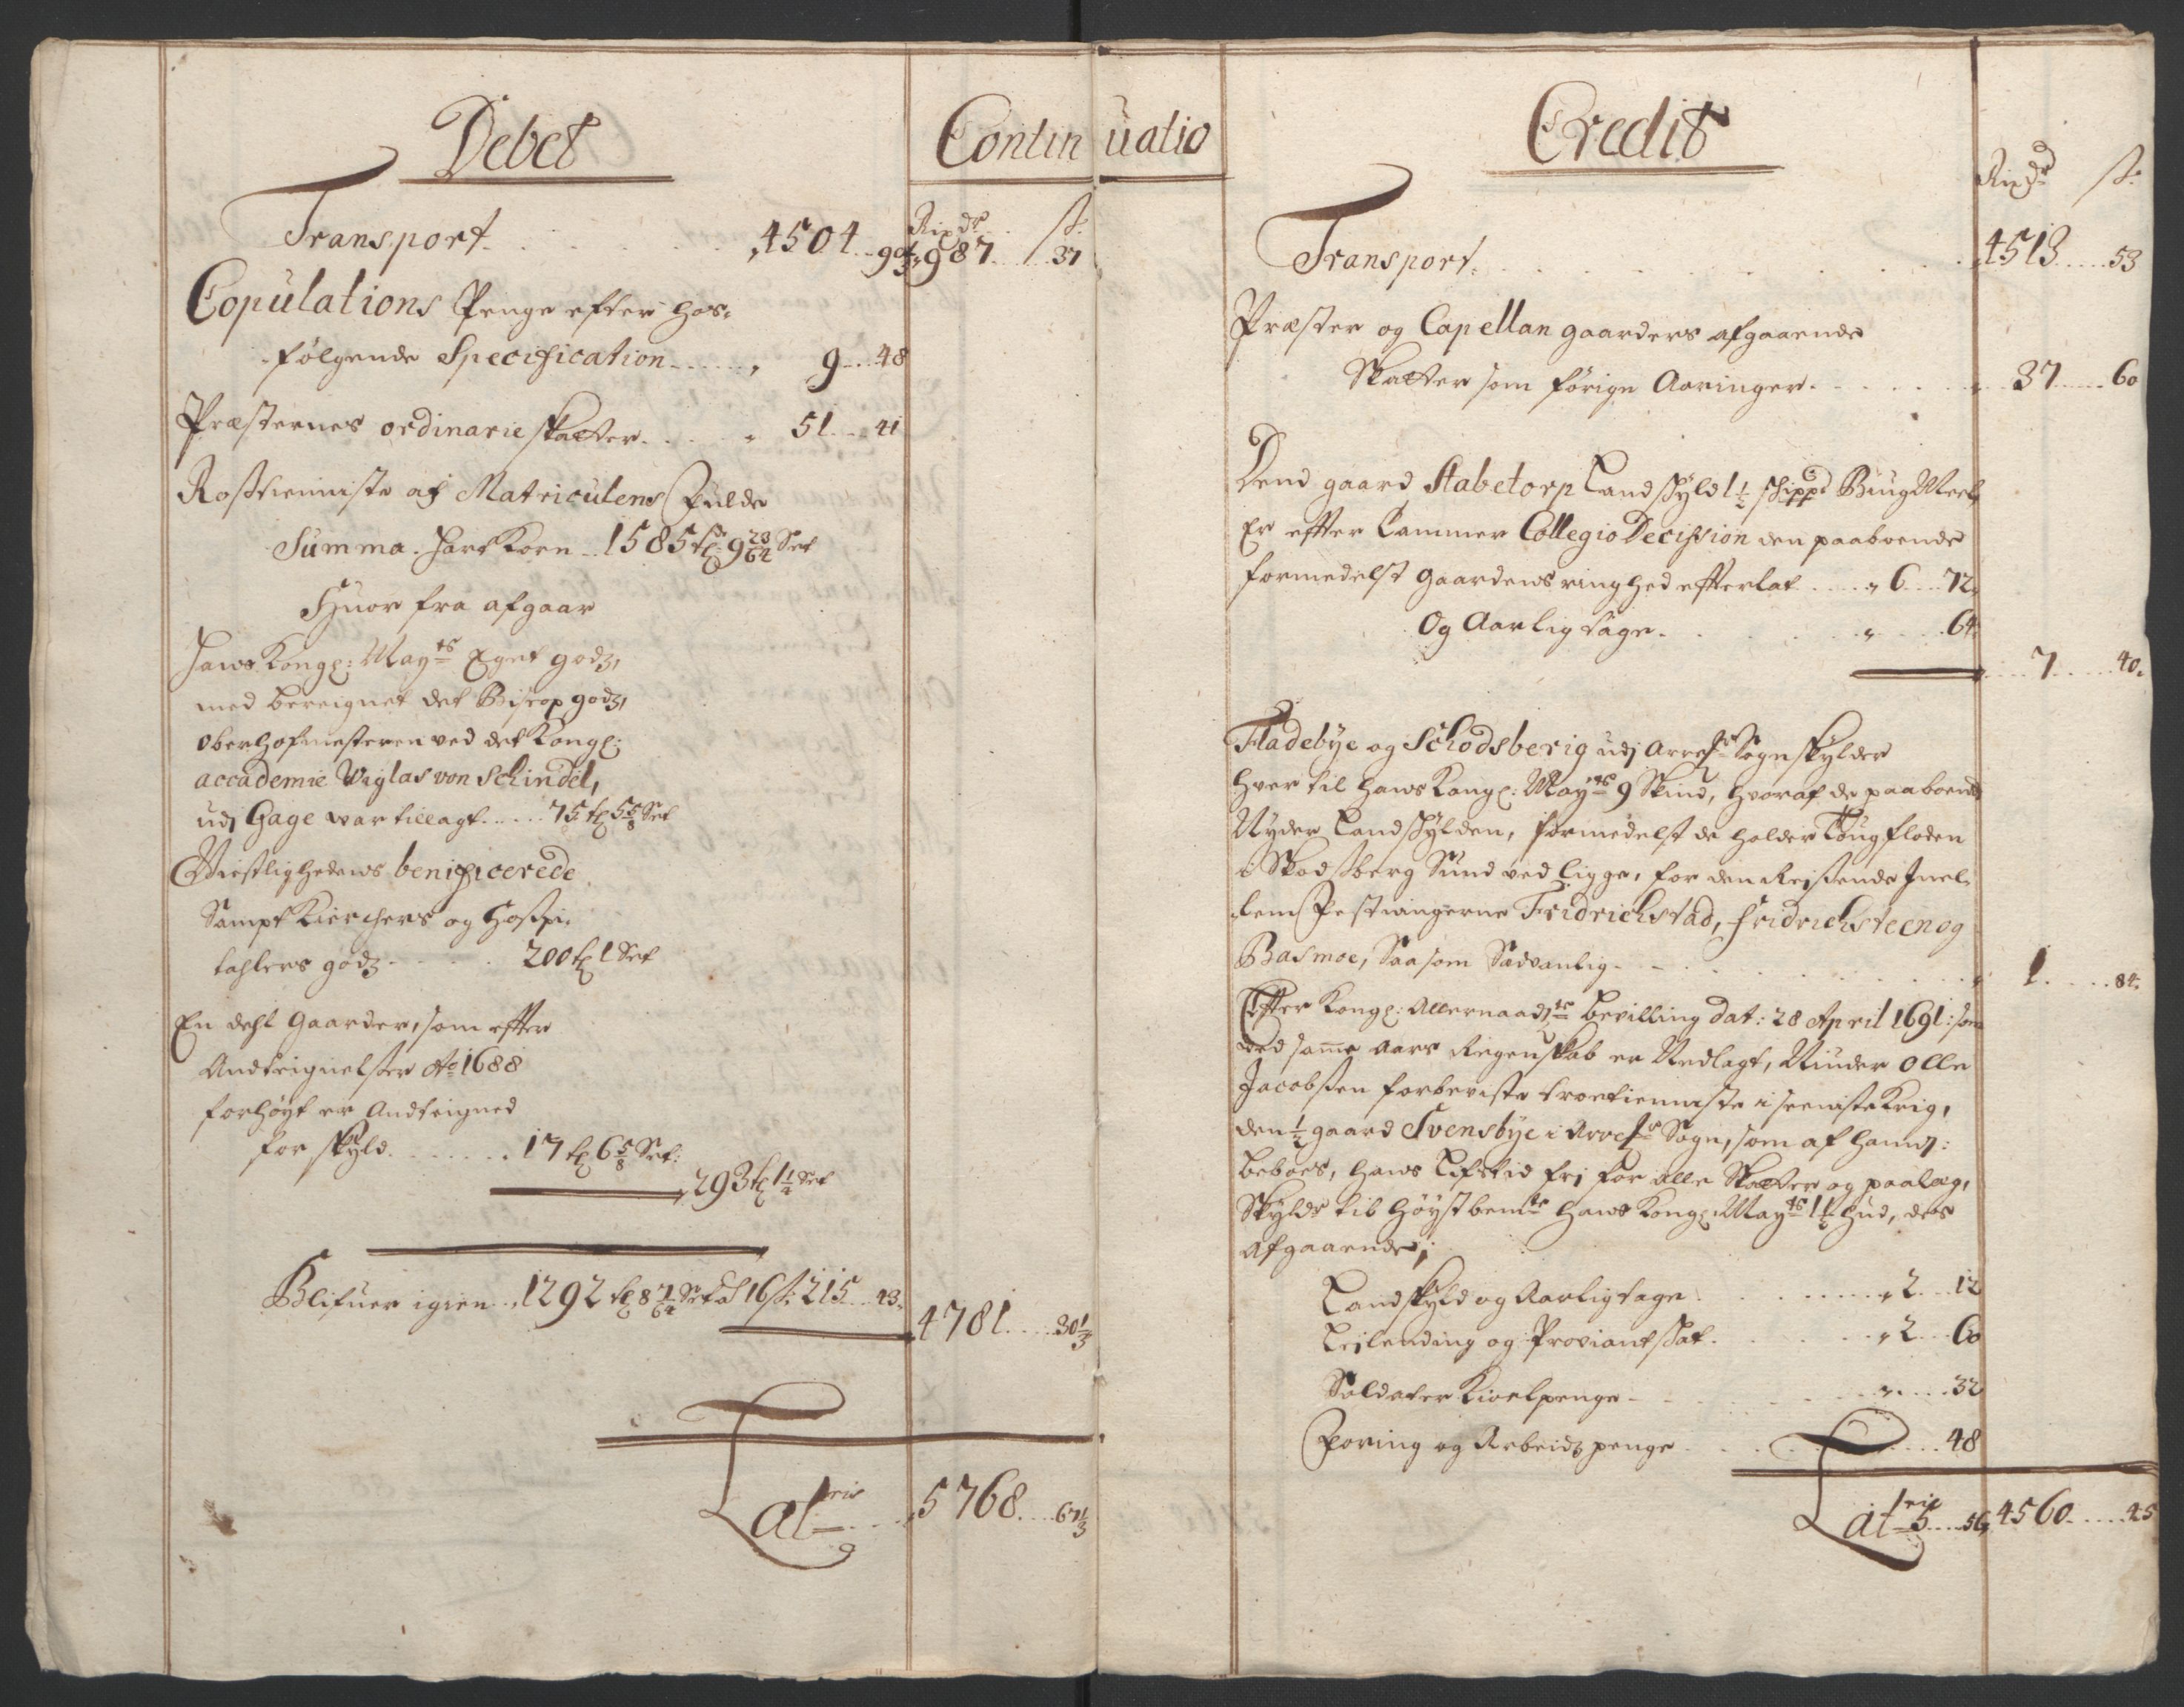 Debet
Continuatio
Rixdr. ß.
Transport. 4504. 90 1/3 987. 37
Copulations Penge efter hos-
følgende Specification 9. 48
Præsternes ordinarie skatter. 51. 41
Roßtienniste af Matriculens Fulde
Summa. Hart Korn 1585 tr. 9 23/64 Set
Huor fra afgaar
Hans Kongl: Mayts Eget godz,
med bereignet det Biscop godz,
oberhofmesteren ved det Kongl:
accademie Wiglas von Schindel,
udj Gage war tillagt. 75 tr 5 5/8 Set
Giestlighedens benificerede
Sampt Kierchers og Hoßpi-
tahlers godz. 200 tr 1 Set
En dehl Gaarder, som efter
Andteignelser Ao 1688
forhøyt er Andteigned
for skyld. 17 tr 6 5/8 Set:
293 tr 1 1/4 Set
Blifuer igien. 1292 tr 8 7/64 Set a 16 ß: 215. 43.
4781. 30 1/3
Lateris 5768. 67 1/3
Credit
Rixdr ß.
Transport. 4513. 53
Præster og Capellan gaarders afgaaende
Skatter som forige Aaringer. 37. 60
Dend gaard Stabetorp Landskyld 1 1/2 schippd Biug Meel
Er efter Cammer Collegio Decission den paaboende
formedelst gaardens ringhed efterlat 6. 72.
Og Aarlig tage. 64.
7. 40.
Fladebye og Schodsberig udj Aremr Sogn skylder
hver til Hans Kongl: Mayts 9 Skind, hvoraf de paaboende
Nyder Landskylden, formedelst de holder Toug floden
i Skodsberg Sund ved lige, for den Reisende Imel-
lem Festningerne Fridrichstad, Fridrichsteen og
Basmoe, Saa som Sædvanlig. 1. 84.
Efter Kongl: Allernaadste bevilling dat: 28 April 1691: som
ved samme Aars Regenskab er Nedlagt, Niuder Olle
Jacobsen forbeviste troetienniste i seeniste Krig,
den 1/2 gaard Svensbye i Aremr Sogn, som af hannem:
beboes, hans Lifstid fri for alle Skatter og paalæg,
Skylder til Høystbemte Hans Kongl: Mayts 1 1/2 Hud, des
Afgaaende;
Landskyld og Aarligtage. 2. 12
Leilending og Proviantskat. 2. 60
Soldater Kioelpenge. 32
Foring og Arbeidz penge. 48
Lateris 5. 56 4560. 45